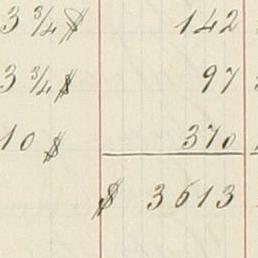 3 3/4 $ 142
3 3/4 $ 97
10 $ 370
$ 3613